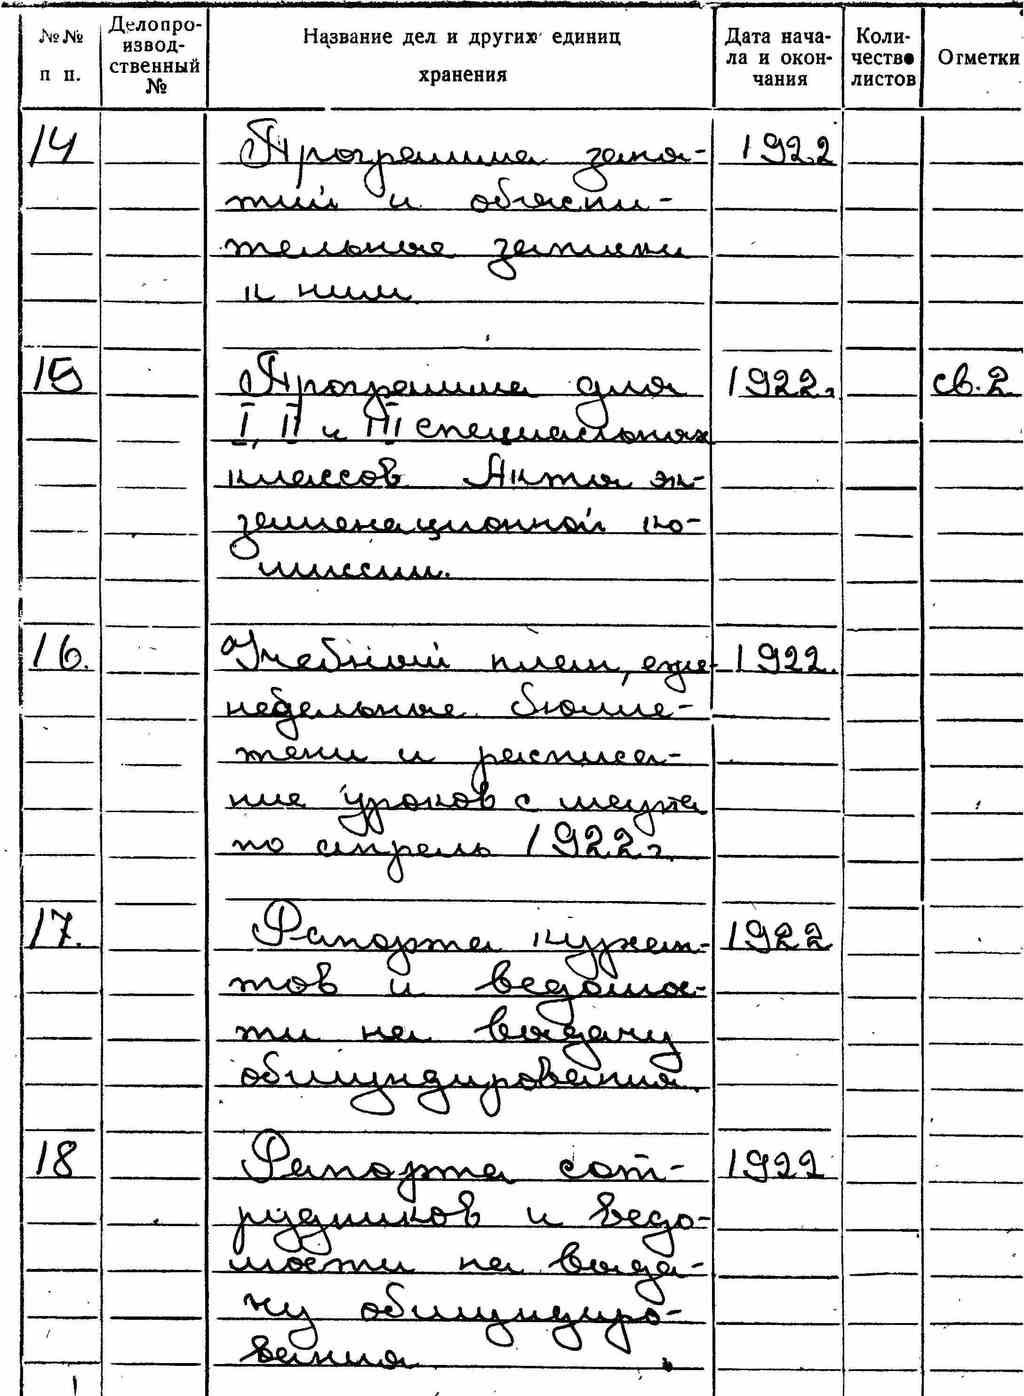 №№ п п.
Делопроизводственный №
Название дел и других единиц хранения
Дата начала и окончания
Количество листов
Отметки
14 Программа заня- 1922
тий и объясни-
тельные записки
к ним
15 Программа для 1922г. св. 2
I, II и III специальных
классов. Акты эк-
заменационной ко-
миссии.
16. Учебный план, еже- 1922.
недельные бюлле-
тени и расписа-
ние уроков с марта
по апрель 1922г.
17. Рапорта курсан- 1922
тов и ведомос-
ти на выдачу
обмундирования.
18 Рапорта сот- 1922
рудников и ведо-
мости на выда-
чу обмундиро-
вания